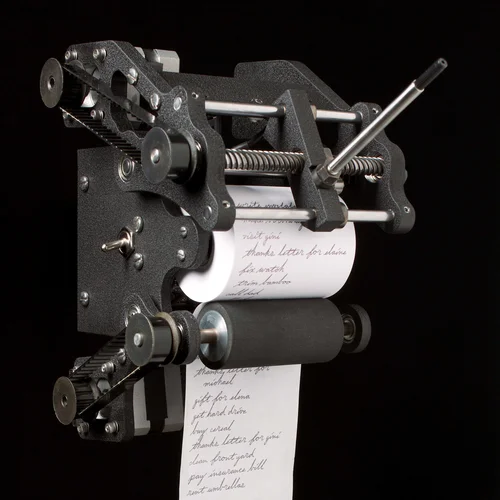 visit gini
thanks letter for elaine
fix watch
trim bamboo
call dad
thanks letter for
michael
gift for elena
get hard drive
buy cereal
thanks letter for gini
clean front yard
pay insurance bill
rent umbrellas